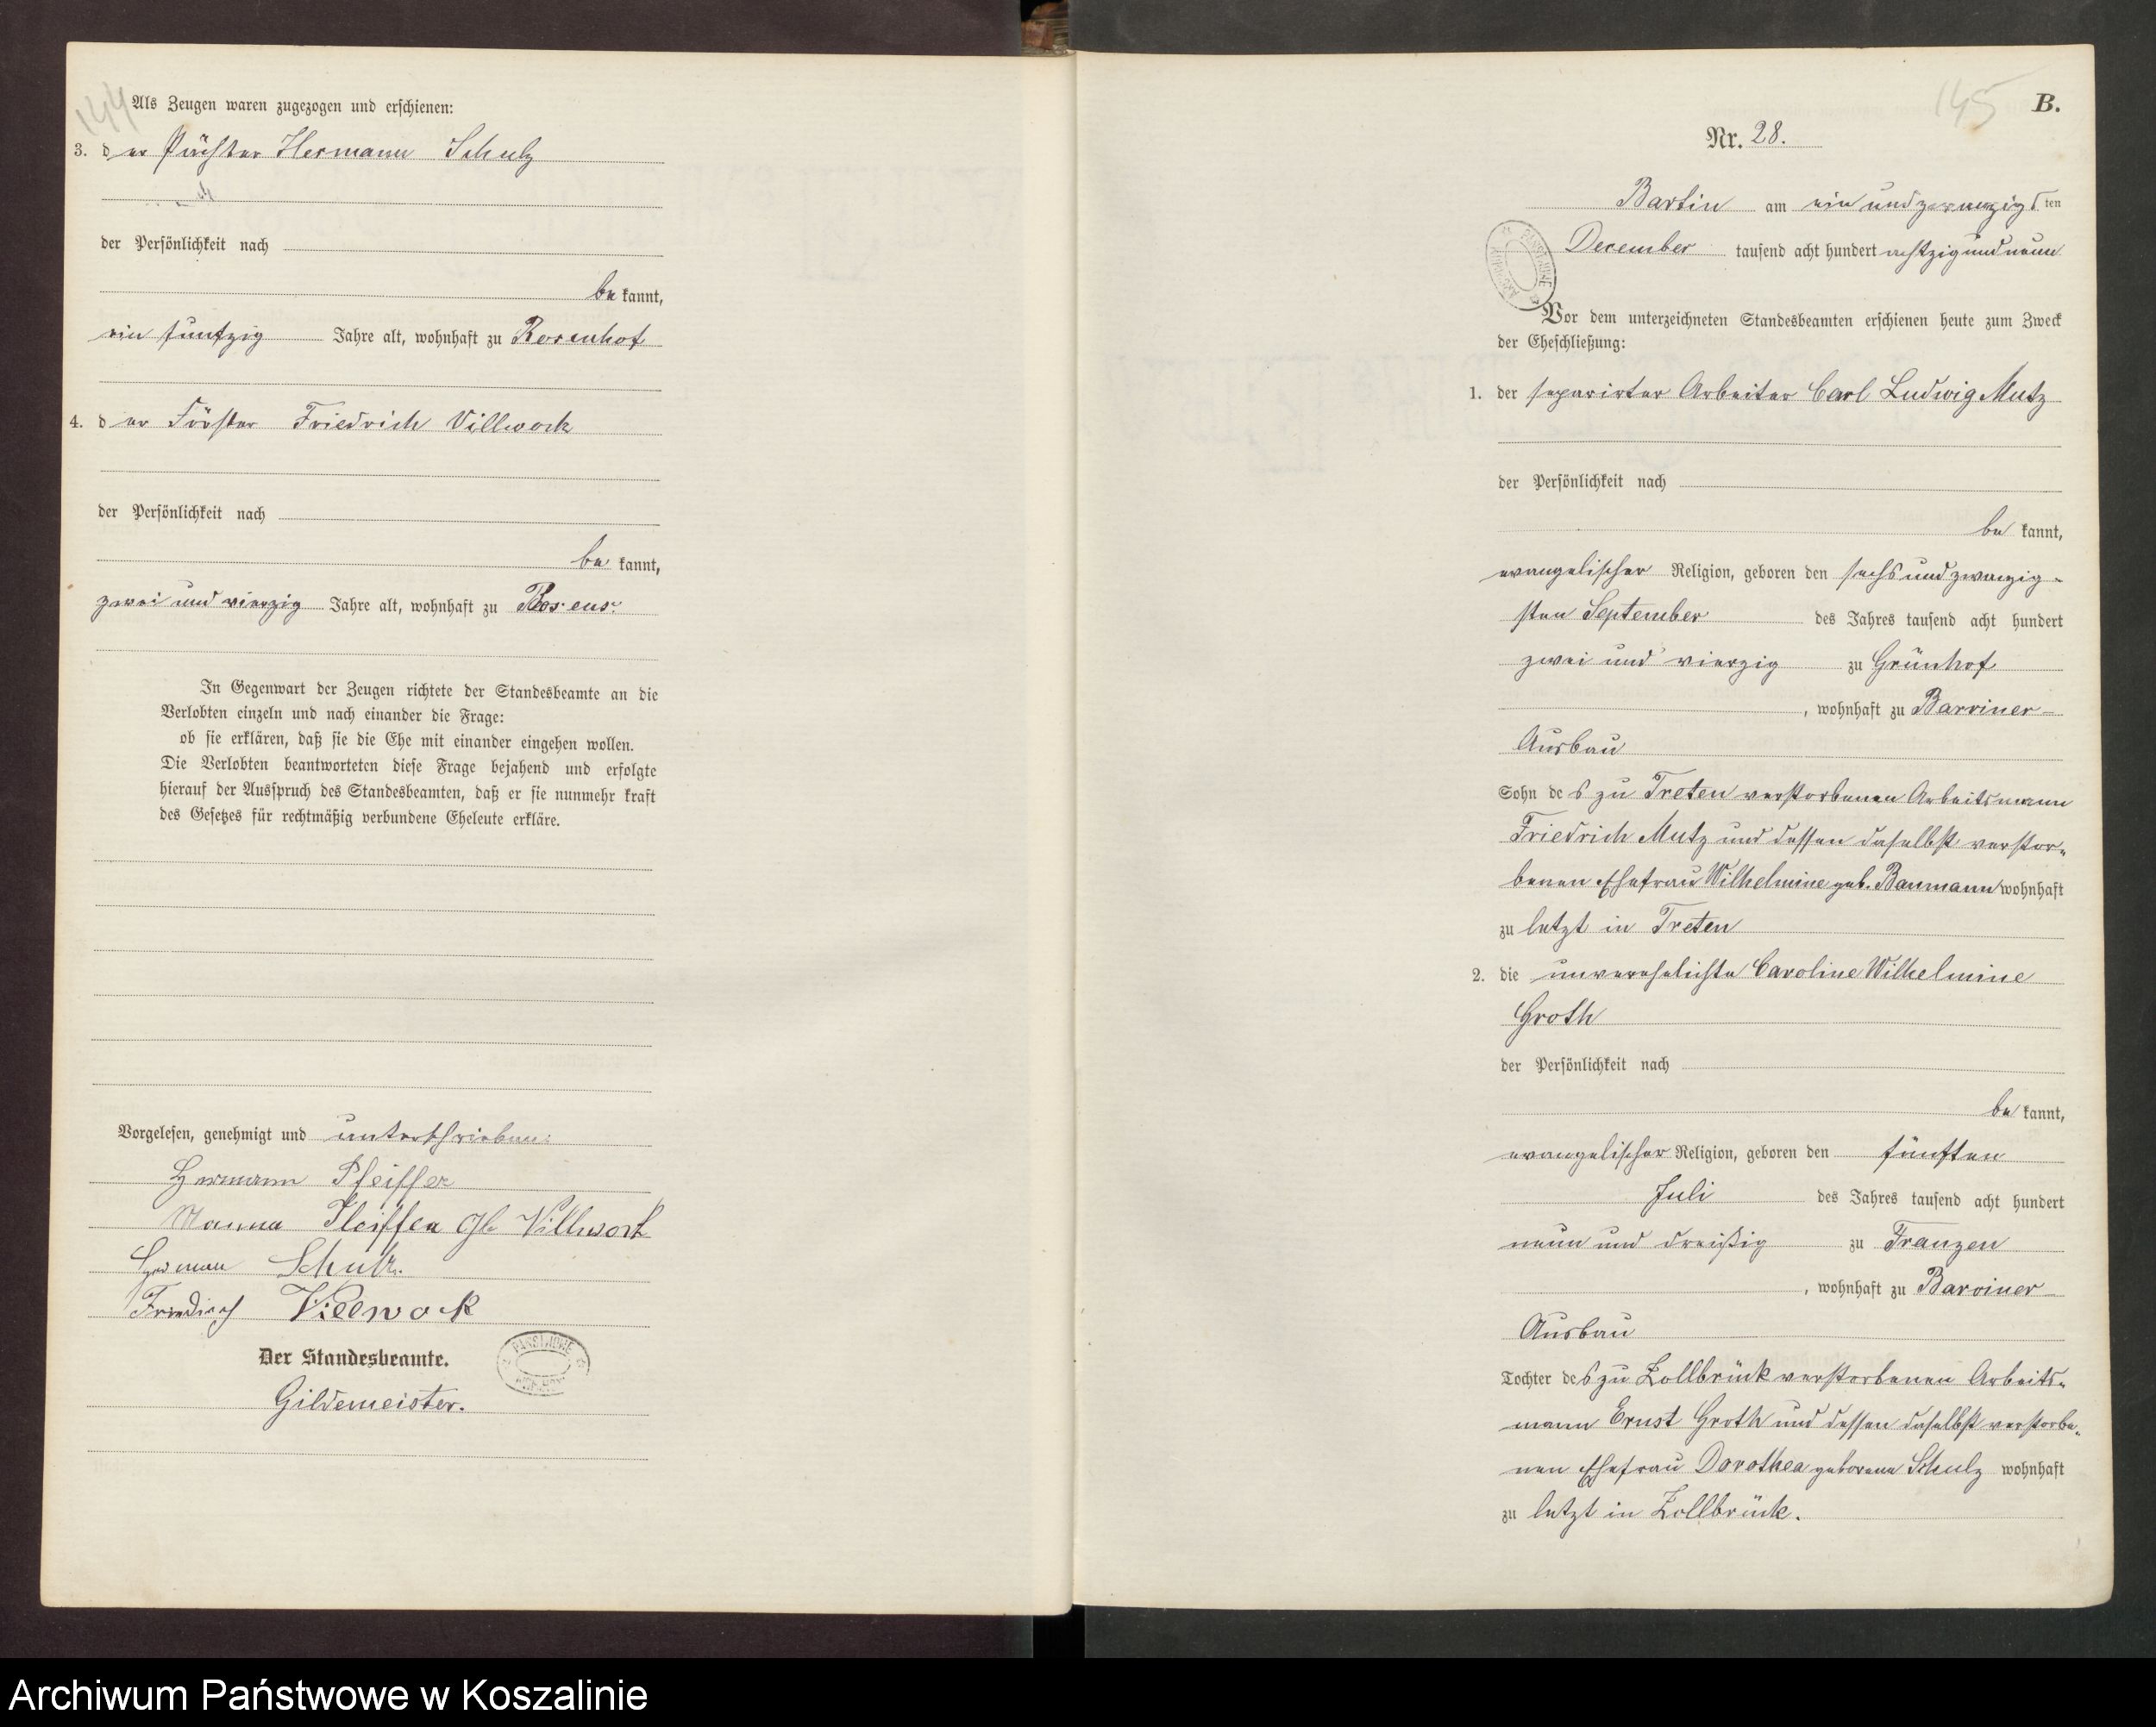 144
Als Zeugen waren zugezogen und erschienen:
3. der Pächter Hermann Schulz
der Persönlichkeit nach
be kannt,
ein funfzig Jahre alt, wohnhaft zu Rosenhof
4. der Förster Friedrich Villwock
der Persönlichkeit nach
be kannt,
zwei und vierzig Jahre alt, wohnhaft zu
In Gegenwart der Zeugen richtete der Standesbeamte an die
Verlobten einzeln und nach einander die Frage:
ob sie erklären, daß sie die Ehe mit einander eingehen wollen.
Die Verlobten beantworteten diese Frage bejahend und erfolgte
hierauf der Ausspruch des Standesbeamten, daß er sie nunmehr kraft
des Gesetzes für rechtmäßig verbundene Eheleute erkläre.
Vorgelesen, genehmigt und unterschrieben:
Hermann Pfeiffer
Pfeiffer Villwock
Herman Schulz.
Friedrich Villwock
Der Standesbeamte.
Gildemeister.
145
B.
Nr. 28.
Bartin am ein und zwanzigsten
December tausend acht hundert achtzig und neun
Vor dem unterzeichneten Standesbeamten erschienen heute zum Zweck
der Eheschließung:
1. der separirter Arbeiter Carl Ludwig Mutz
der Persönlichkeit nach
be kannt,
evangelischer Religion, geboren den sechs und zwanzig-
sten September des Jahres tausend acht hundert
zwei und vierzig zu Grünhof
, wohnhaft zu Barviner-
Ausbau
Sohn des zu Treten verstorbenen Arbeitsmann
Friedrich Mutz und dessen daselbst verstor-
benen Ehefrau Wilhelmine geb. Baumann wohnhaft
zu letzt in Treten
2. die unverehelichte Caroline Wilhelmine
Groth
der Persönlichkeit nach
be kannt,
evangelischer Religion, geboren den fünften
Juli des Jahres tausend acht hundert
neun und dreißig zu Franzen
, wohnhaft zu Barviner
Ausbau
Tochter des zu Zollbrück verstorbenen Arbeits-
mann Ernst Groth und dessen daselbst verstorbe-
nen Ehefrau Dorothea geborene Schulz wohnhaft
zu letzt in Zollbrück.
Archiwum Państwowe w Koszalinie